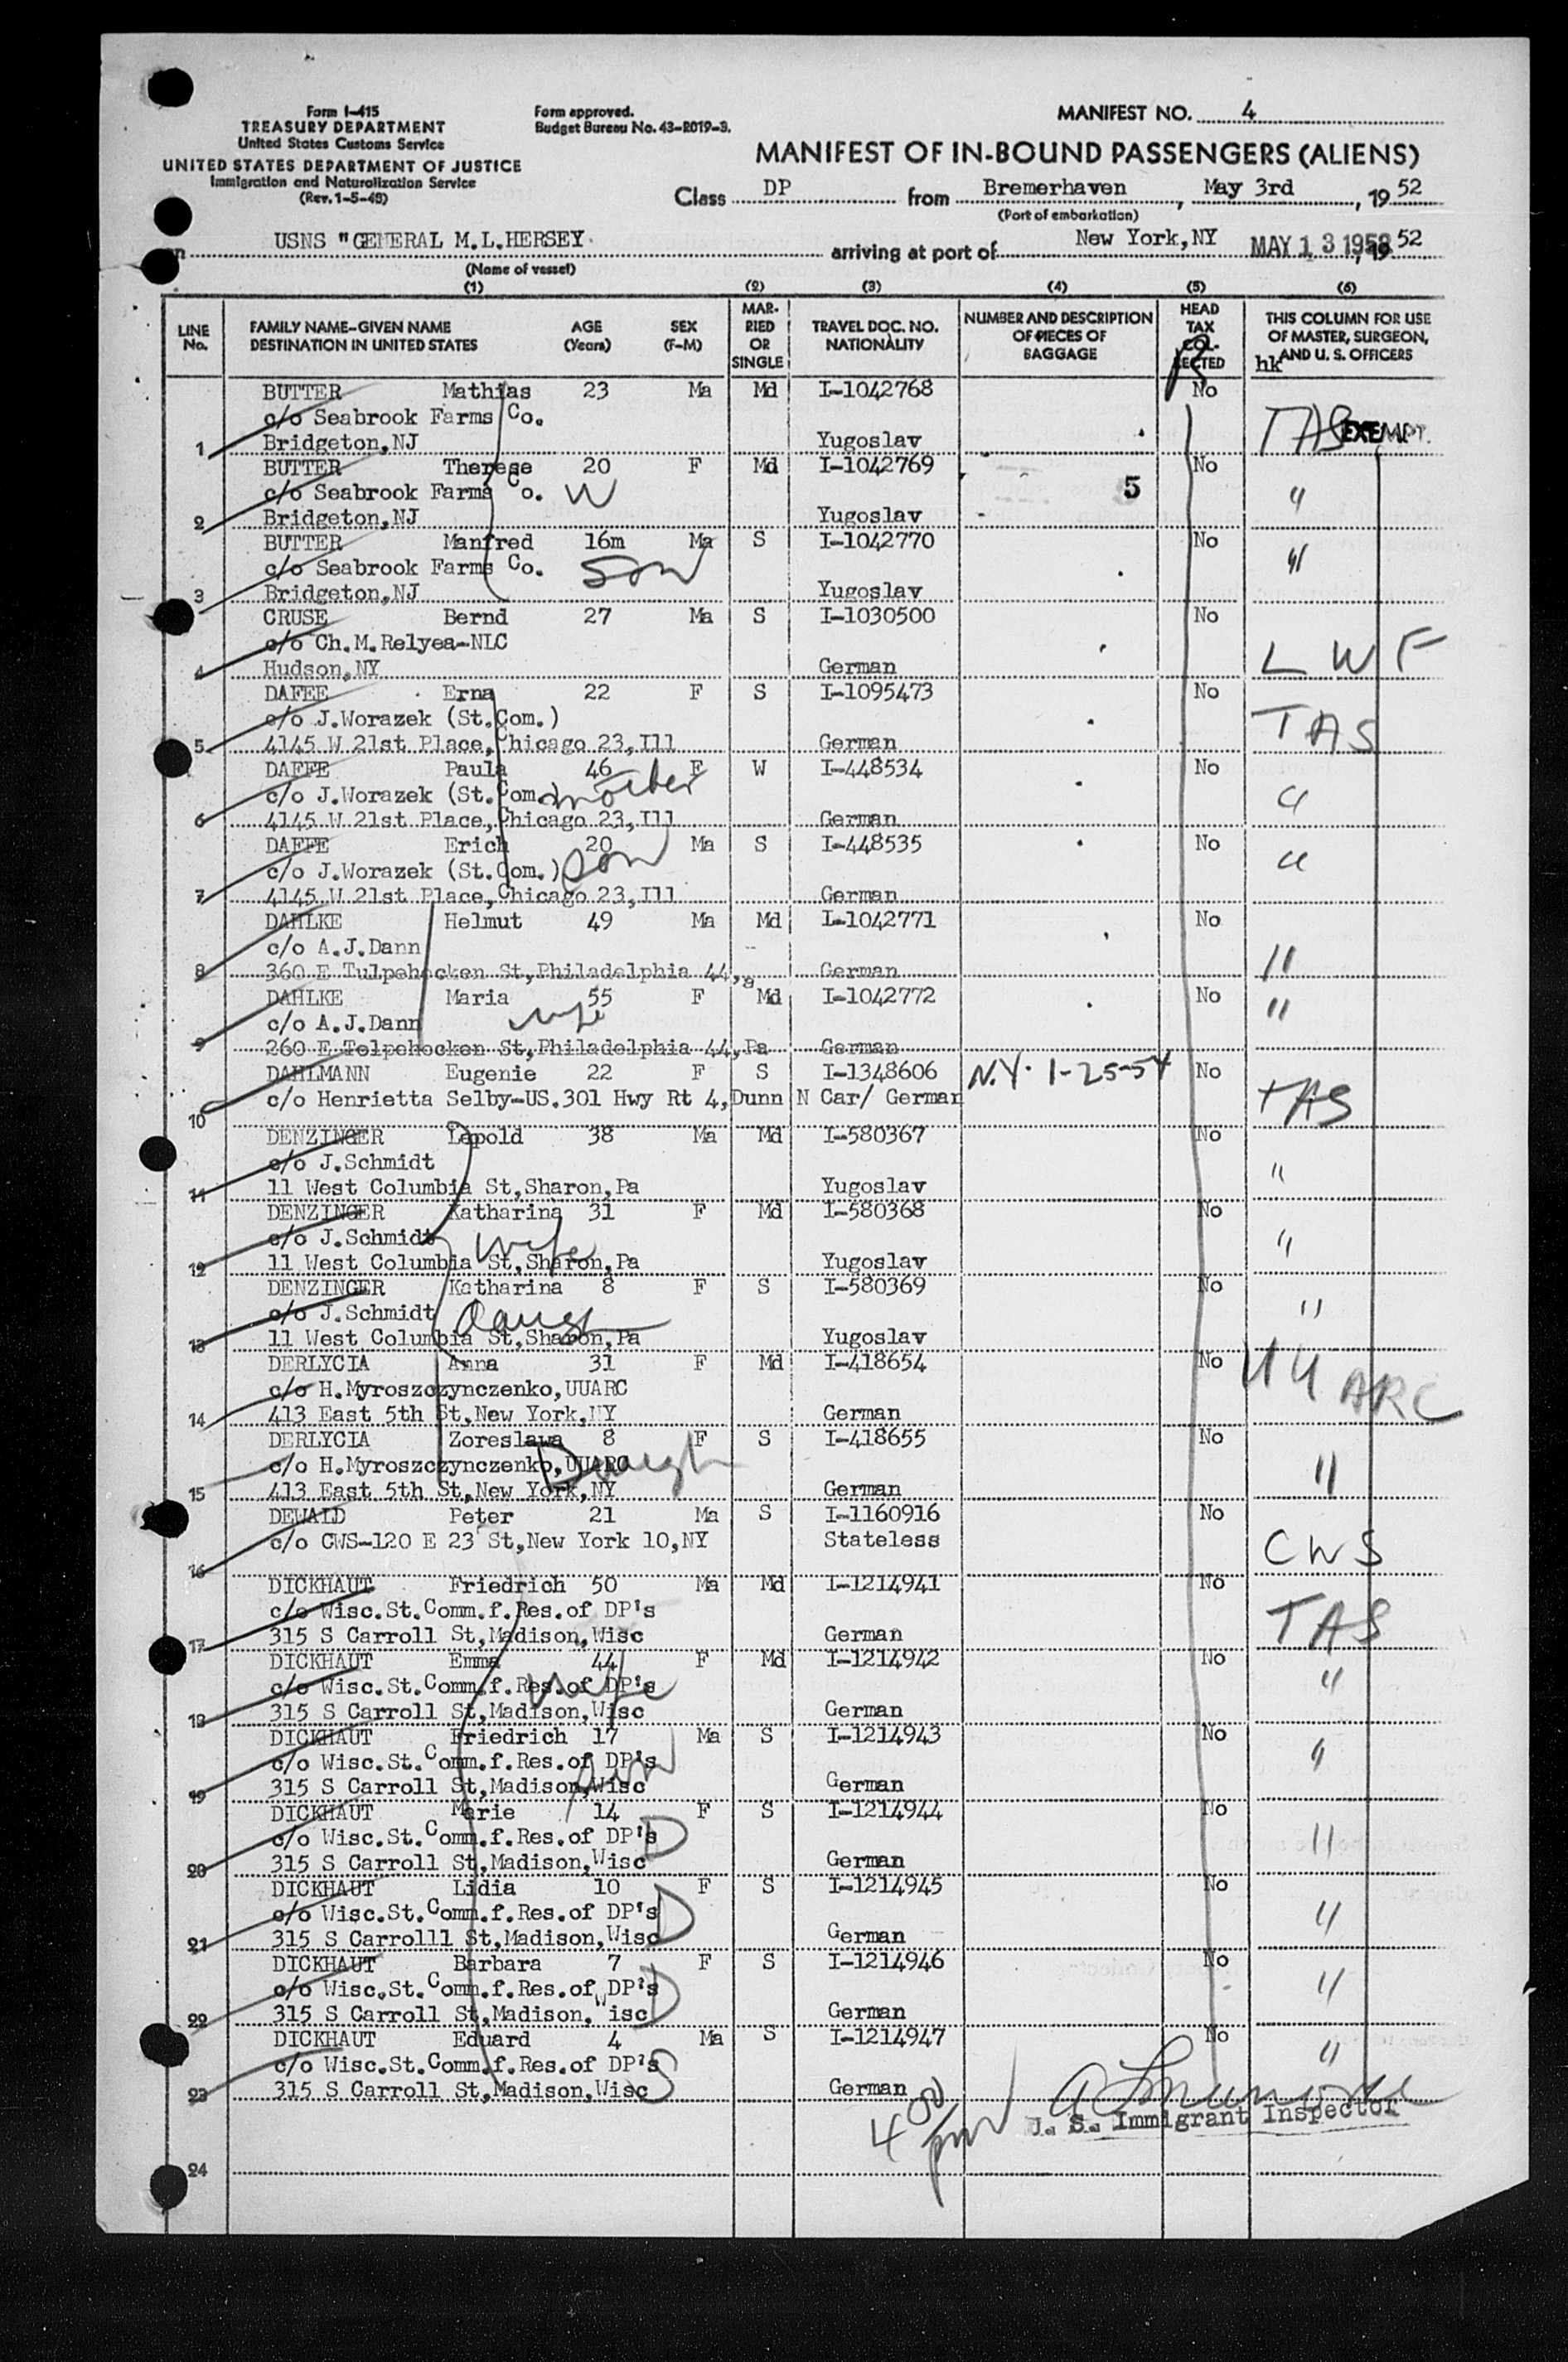 Form I-415
TREASURY DEPARTMENT
United States Customs Service
UNITED STATES DEPARTMENT OF JUSTICE
Immigration and Naturalization Service
(Rev. 1-5-49)
Form approved.
Budget Bureau No. 43-R019-3.
MANIFEST NO. 4
MANIFEST OF IN-BOUND PASSENGERS (ALIENS)
Class DP from Bremerhaven, May 3rd, 19 52
(Port of embarkation)
USNS "GENERAL M.L.HERSEY arriving at port of New York,NY MAY 13 1952 52
(Name of vessel)
(1) (2) (3) (4) (5) (6)
LINE No.
FAMILY NAME-GIVEN NAME DESTINATION IN UNITED STATES
AGE (Years)
SEX (F-M)
MARRIED OR SINGLE
TRAVEL DOC. NO. NATIONALITY
NUMBER AND DESCRIPTION OF PIECES OF BAGGAGE
HEAD TAX COLLECTED
THIS COLUMN FOR USE OF MASTER, SURGEON, AND U. S. OFFICERS
hk
BUTTER Mathias 23 Ma Md I-1042768 No
c/o Seabrook Farms Co. TAS EXEMPT.
1 Bridgeton,NJ Yugoslav
BUTTER Therese 20 F Md I-1042769 No
c/o Seabrook Farms Co. W 5 "
2 Bridgeton,NJ Yugoslav
BUTTER Manfred 16m Ma S I-1042770 No
c/o Seabrook Farms Co. son "
3 Bridgeton,NJ Yugoslav
CRUSE Bernd 27 Ma S I-1030500 No
c/o Ch.M.Relyea-NLC L W F
4 Hudson,NY German
DAFEE Erna 22 F S I-1095473 No
c/o J.Worazek (St.Com.) TAS
5 4145 W 21st Place,Chicago 23,Ill German
DAFFE Paula 46 F W I-448534 No
c/o J.Worazek (St.Com.) mother "
6 4145 W 21st Place,Chicago 23,Ill German
DAFFE Erich 20 Ma S I-448535 No
c/o J.Worazek (St.Com.) son "
7 4145 W 21st Place,Chicago 23,Ill German
DAHLKE Helmut 49 Ma Md I-1042771 No
c/o A.J.Dann "
8 360 E Tulpehocken St,Philadelphia 44,a German
DAHLKE Maria 55 F Md I-1042772 No
c/o A.J.Dann wife "
9 260 E Telpehocken St,Philadelphia 44,Pa German
DAHLMANN Eugenie 22 F S I-1348606 N.Y. 1-25-54 No
c/o Henrietta Selby-US.301 Hwy Rt 4,Dunn N Car/ German TAS
10
DENZINGER Lepold 38 Ma Md I-580367 No
c/o J.Schmidt "
11 11 West Columbia St,Sharon,Pa Yugoslav
DENZINGER Katharina 31 F Md I-580368 No
c/o J.Schmidt wife "
12 11 West Columbia St,Sharon,Pa Yugoslav
DENZINGER Katharina 8 F S I-580369 No
c/o J.Schmidt daugh "
13 11 West Columbia St,Sharon,Pa Yugoslav
DERLYCIA Anna 31 F Md I-418654 No UUARC
c/o H.Myroszczynczenko,UUARC
14 413 East 5th St,New York,NY German
DERLYCIA Zoreslawa 8 F S I-418655 No
c/o H.Myroszczynczenko,UUARC Daugh "
15 413 East 5th St,New York,NY German
DEWALD Peter 21 Ma S I-1160916 No
c/o CWS-120 E 23 St,New York 10,NY Stateless CWS
16
DICKHAUT Friedrich 50 Ma Md I-1214941 No
c/o Wisc.St.Comm.f.Res.of DP's TAS
17 315 S Carroll St,Madison,Wisc German
DICKHAUT Emma 44 F Md I-1214942 No
c/o Wisc.St.Comm.f.Res.of DP's wife "
18 315 S Carroll St,Madison,Wisc German
DICKHAUT Friedrich 17 Ma S I-1214943 No
c/o Wisc.St.Comm.f.Res.of DP's son "
19 315 S Carroll St,Madison,Wisc German
DICKHAUT Marie 14 F S I-1214944 No
c/o Wisc.St.Comm.f.Res.of DP's D "
20 315 S Carroll St,Madison,Wisc German
DICKHAUT Lidia 10 F S I-1214945 No
c/o Wisc.St.Comm.f.Res.of DP's D "
21 315 S Carrolll St,Madison,Wisc German
DICKHAUT Barbara 7 F S I-1214946 No
c/o Wisc.St.Comm.f.Res.of DP's D "
22 315 S Carroll St,Madison,Wisc German
DICKHAUT Eduard 4 Ma S I-1214947 No
c/o Wisc.St.Comm.f.Res.of DP's S "
23 315 S Carroll St,Madison,Wisc German
4 00 pm U. S. Immigrant Inspector
24